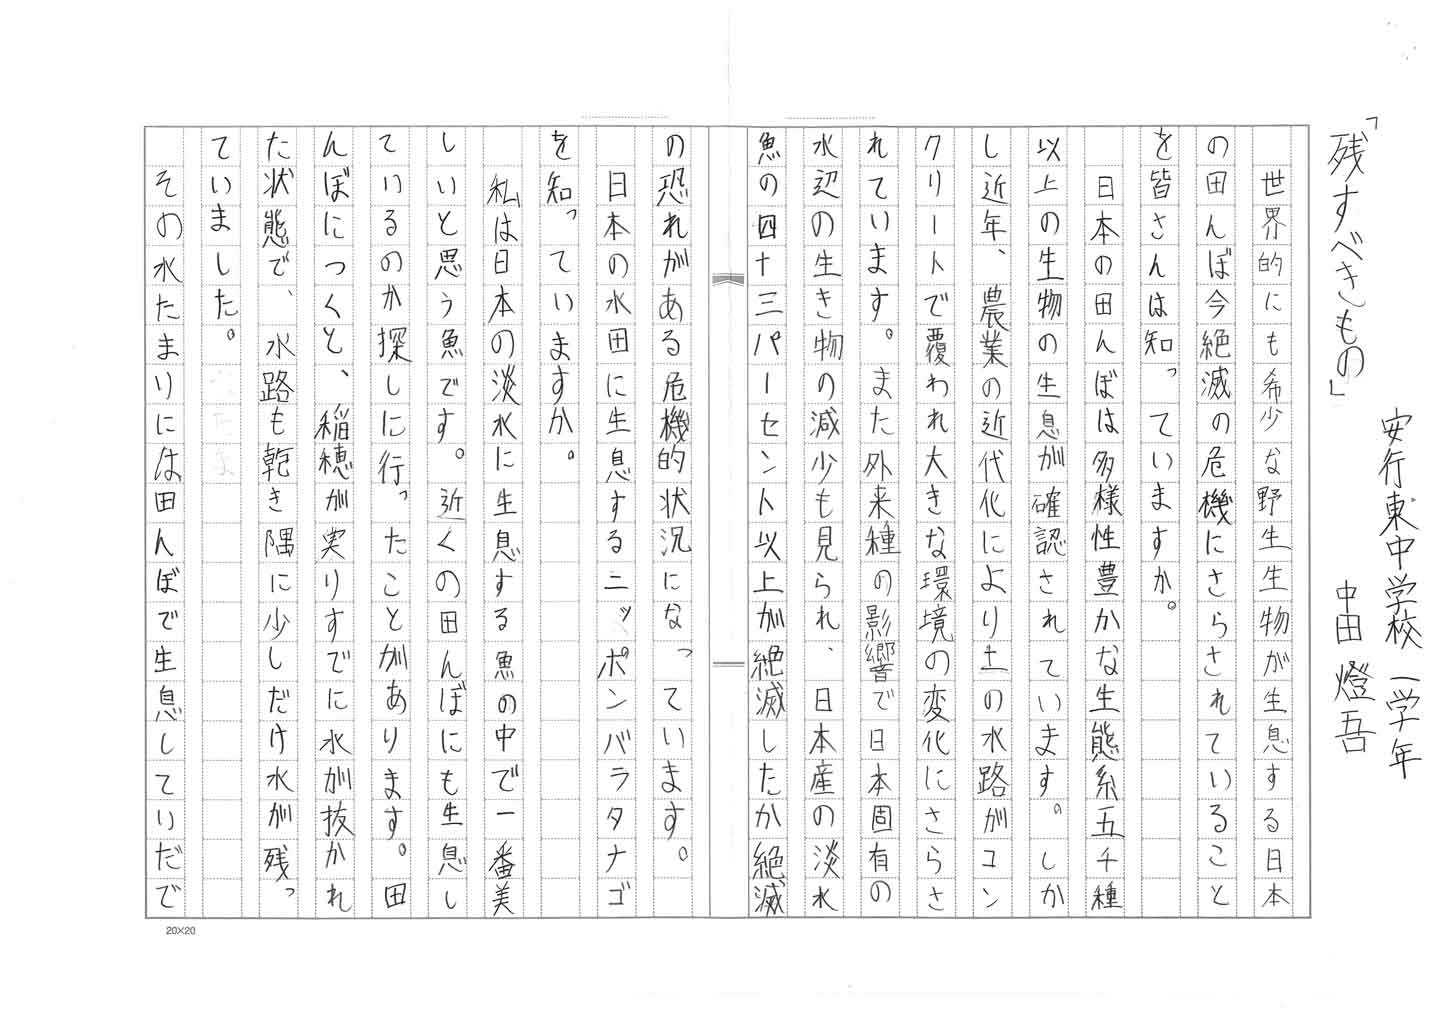 「残すべきもの」
安行東中学校 一学年
中田 燈吾
世界的にも希少な野生生物が生息する日本
の田んぼ今絶滅の危機にさらされていること
を皆さんは知っていますか。
日本の田んぼは多様性豊かな生態系五千種
以上の生物の生息が確認されています。しか
し近年、農業の近代化により土の水路がコン
クリートで覆われ大きな環境の変化にさらさ
れています。また外来種の影響で日本固有の
水辺の生き物の減少も見られ、日本産の淡水
魚の四十三パーセント以上が絶滅したか絶滅
の恐れがある危機的状況になっています。
日本の水田に生息するニッポンバラタナゴ
を知っていますか。
私は日本の淡水に生息する魚の中で一番美
しいと思う魚です。近くの田んぼにも生息し
ているのか探しに行ったことがあります。田
んぼにつくと、稲穂が実りすでに水が抜かれ
た状態で、水路も乾き隅に少しだけ水が残っ
ていました。
その水たまりには田んぼで生息していただで
20×20